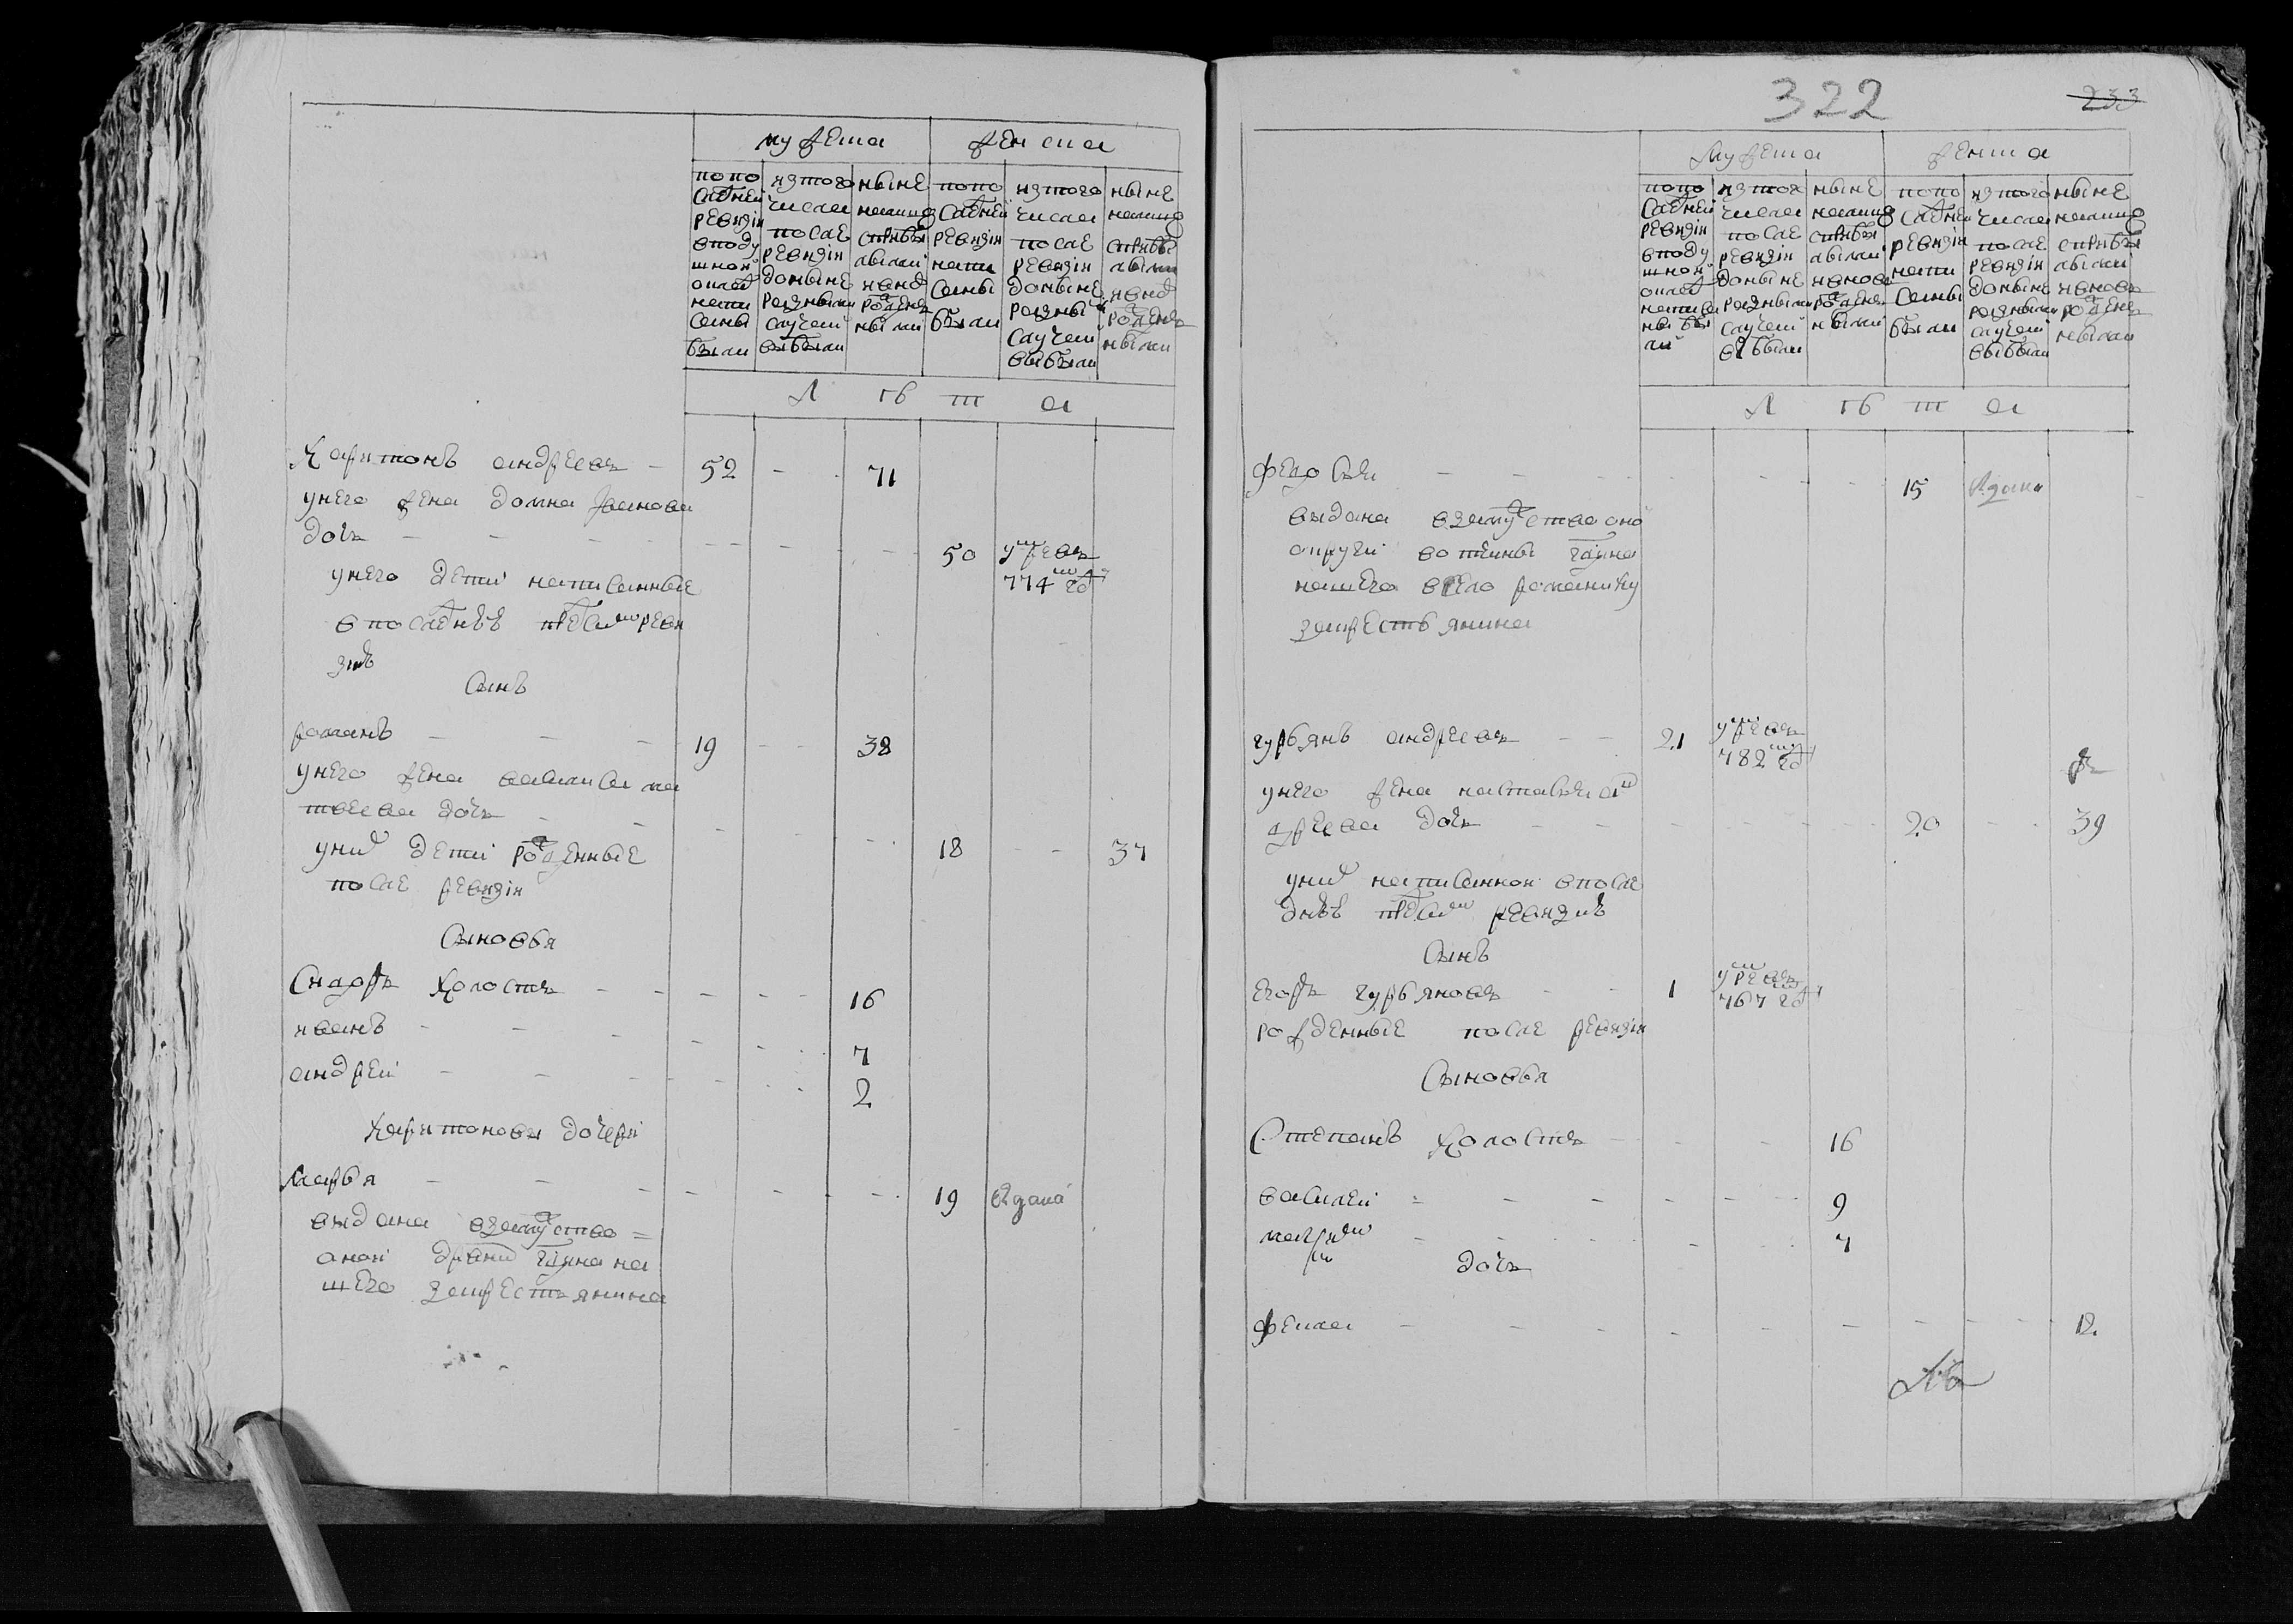 мужеска
женска
попо
следней
ревизіи
вподу
шной
оклад
напи
саны
были
изтого
числа
после
ревизіи
доныне
разными
случеи
выбыли
ныне
налицо
сприбы
лыми
ивнов
рожден
ными
попо
следней
ревизіи
напи
саны
были
изтого
числа
после
ревизіи
доныне
разны
случеи
выбыли
ныне
налицо
сприбы
лыми
ивнов
рожден
ными
Л ѣ т а
Харитонъ андреевъ 52 71
унего жена домна Iванова
дочь 50 умре въ
774 год
унего дети написанные
впоследнѣѣ пред симъ реви
зиѣ
Сынъ
романъ 19 38
унего жена василиса ма
твеева дочь 18 37
уних дети рожденные
после ревизіи
Сыновья
Сидоръ холостъ 16
иванъ 7
андреи 2
Харитоновы дочери
Марья 19 Отдана
выдана взамужство
оной
шего же крестьянина
322
233
мужеска
женска
попо
следней
ревизіи
вподу
шной
оклад
написа
ны бы
ли
изтого
числа
после
ревизіи
доныне
разными
случеи
выбыли
ныне
налицо
сприбы
лыми
ивновь
рожден
ными
попо
следней
ревизіи
напи
саны
были
изтого
числа
после
ревизіи
доныне
разными
случеи
выбыли
ныне
налицо
сприбы
лыми
ивновь
рожден
ными
Л ѣ т а
Федосья 15 Отдана
выдана взамужство оной
округи вотчины
нашего всело романиху
за крестьянина
гурьянъ андреевъ 21 умре въ
782 год
унего жена настасья ан
дреева дочь 20 39
уних написанной впосле
днѣѣ пред симъ ревизиѣ
Сынъ
Егоръ гурьяновъ 1 умре въ
767 год
рожденные после ревизіи
Сыновья
Степанъ холостъ 16
василеи 9
7
дочь
Фекла 12